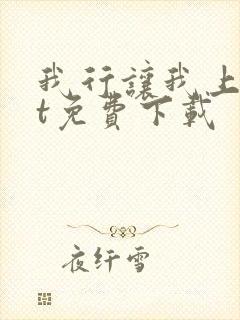 我行讓我上
t免費下載
夜纤雪